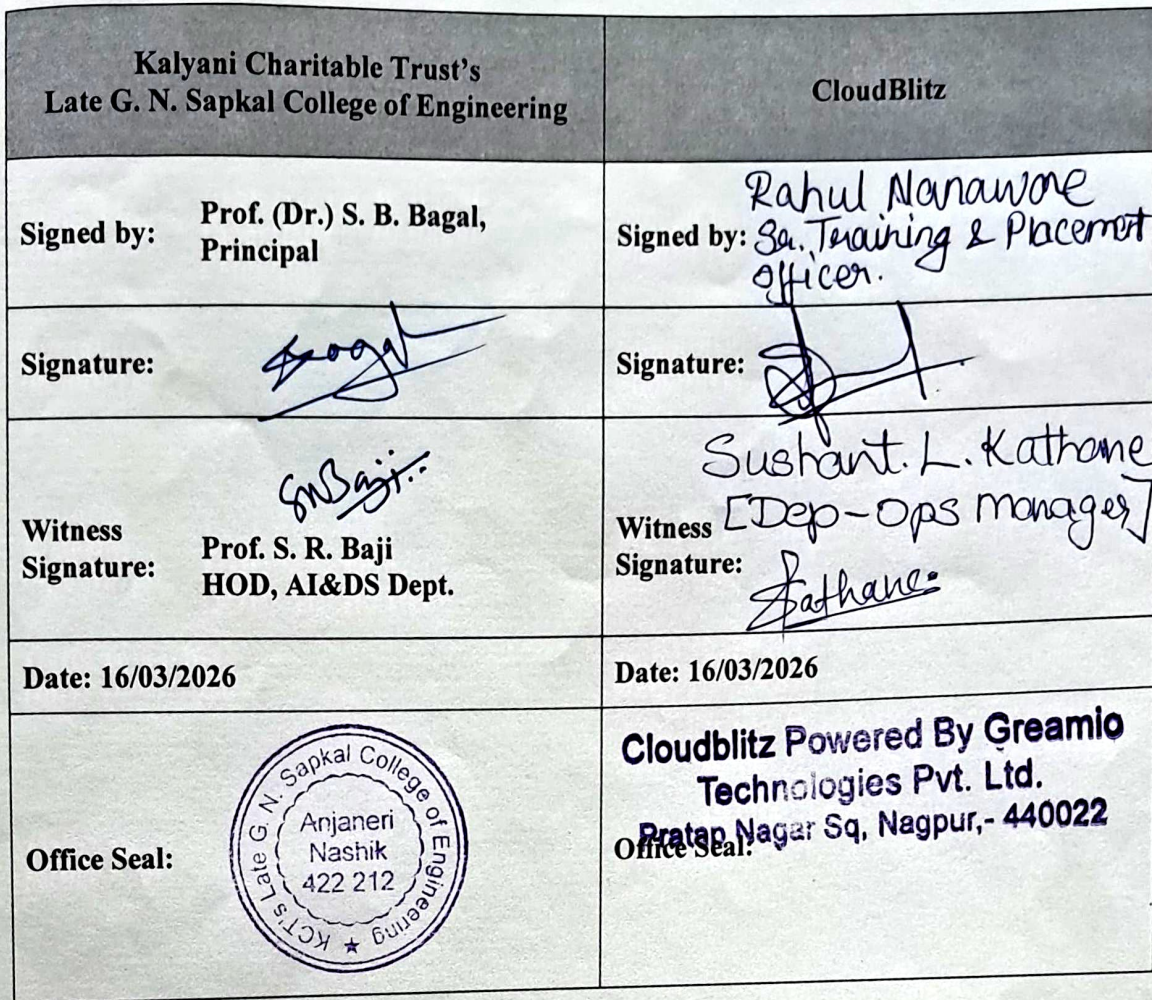 Kalyani Charitable Trust's
Late G. N. Sapkal College of Engineering
CloudBlitz
Signed by:
Prof. (Dr.) S. B. Bagal,
Principal
Signed by:
Rahul Nanaware
Sr. Training & Placement
officer.
Signature:
Signature:
SNBaji.
Witness
Signature:
Prof. S. R. Baji
HOD, AI&DS Dept.
Sushant. L. Kathane
[Dep-Ops Manager]
Witness
Signature:
Kathane
Date: 16/03/2026
Date: 16/03/2026
Office Seal:
KCT's Late G. N. Sapkal College of Engineering
Anjaneri
Nashik
422 212
Cloudblitz Powered By Greamio
Technologies Pvt. Ltd.
Pratap Nagar Sq, Nagpur,- 440022
Office Seal: